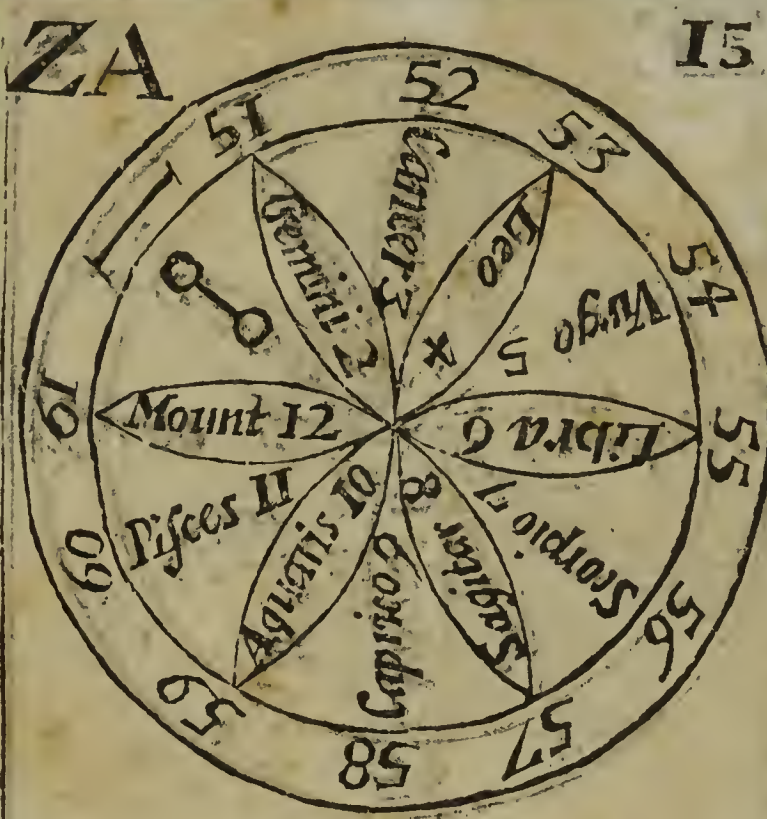 ZA
15
51
52
53
54
55
56
57
58
59
60
61
Gemini 2
Cancer 3
Leo 4
Virgo 5
Libra 6
Scorpio 7
Sagitar 8
Aquaris 10
Piſces 11
Mount 12